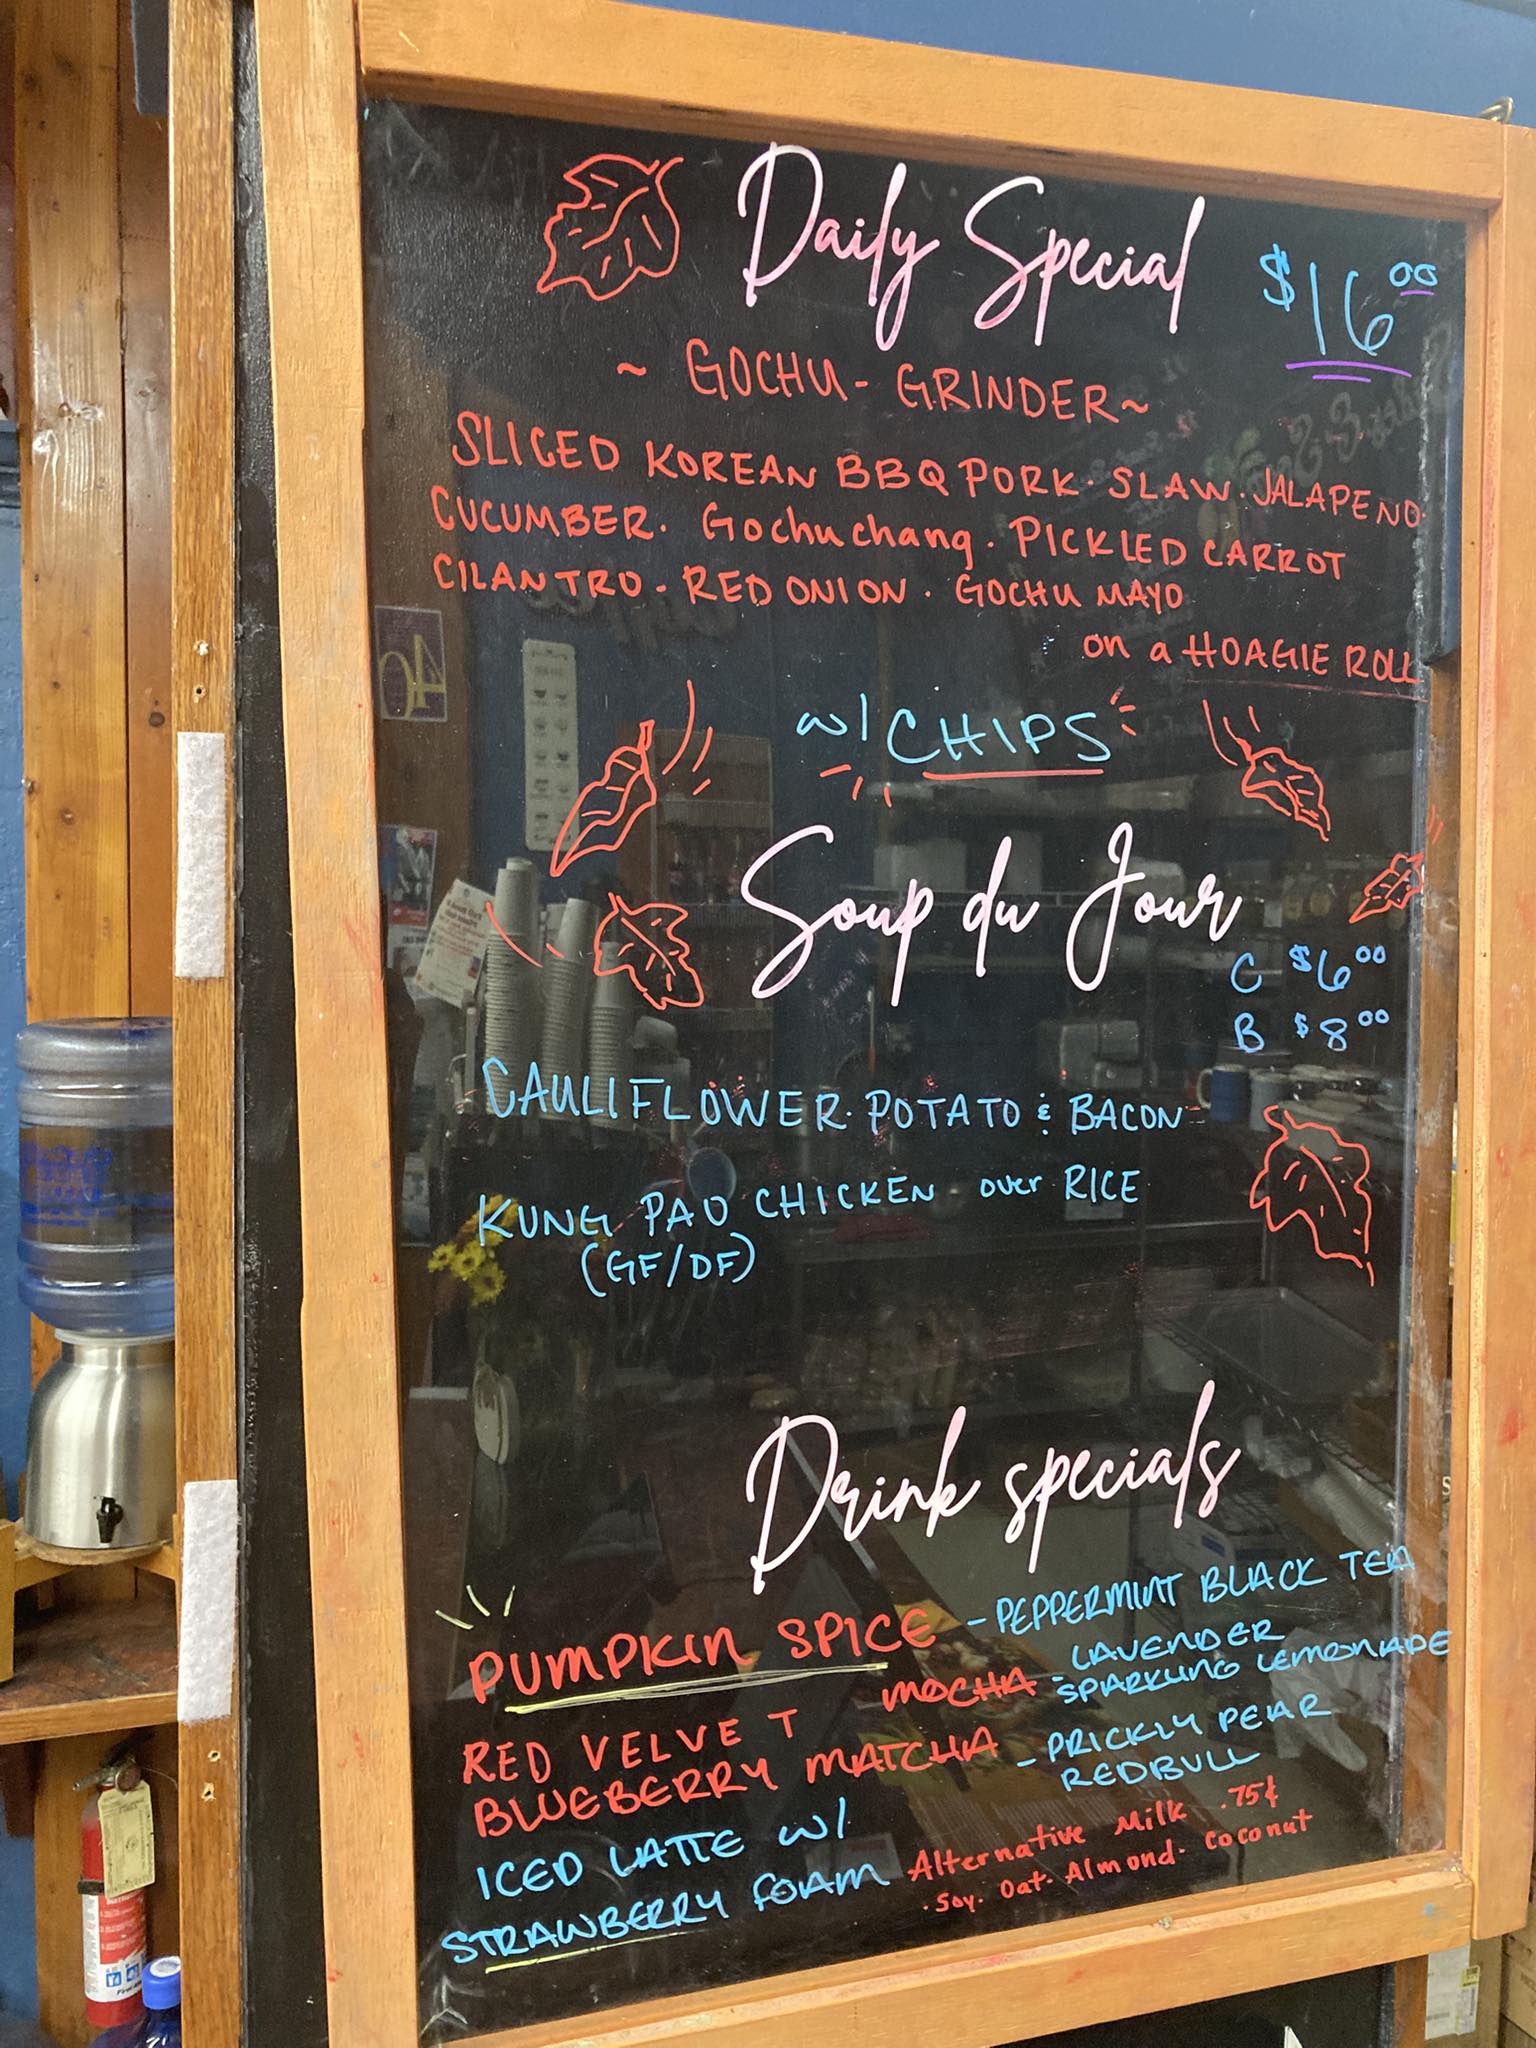 Daily Special
$16.00
~ GOCHU - GRINDER ~
SLICED KOREAN BBQ PORK · SLAW · JALAPENO ·
CUCUMBER · Gochuchang · PICKLED CARROT
CILANTRO · RED ONION · GOCHU MAYO
on a HOAGIE ROLL
w/ CHIPS
Soup du Jour
C $6.00
B $8.00
CAULIFLOWER · POTATO & BACON
KUNG PAO CHICKEN over RICE
(GF/DF)
Drink specials
PUMPKIN SPICE
RED VELVET MOCHA
BLUEBERRY MATCHA
ICED LATTE w/
STRAWBERRY FOAM
- PEPPERMINT BLACK TEA
- LAVENDER
SPARKLING LEMONADE
- PRICKLY PEAR
REDBULL
Alternative Milk .75¢
· Soy · Oat · Almond · Coconut
40